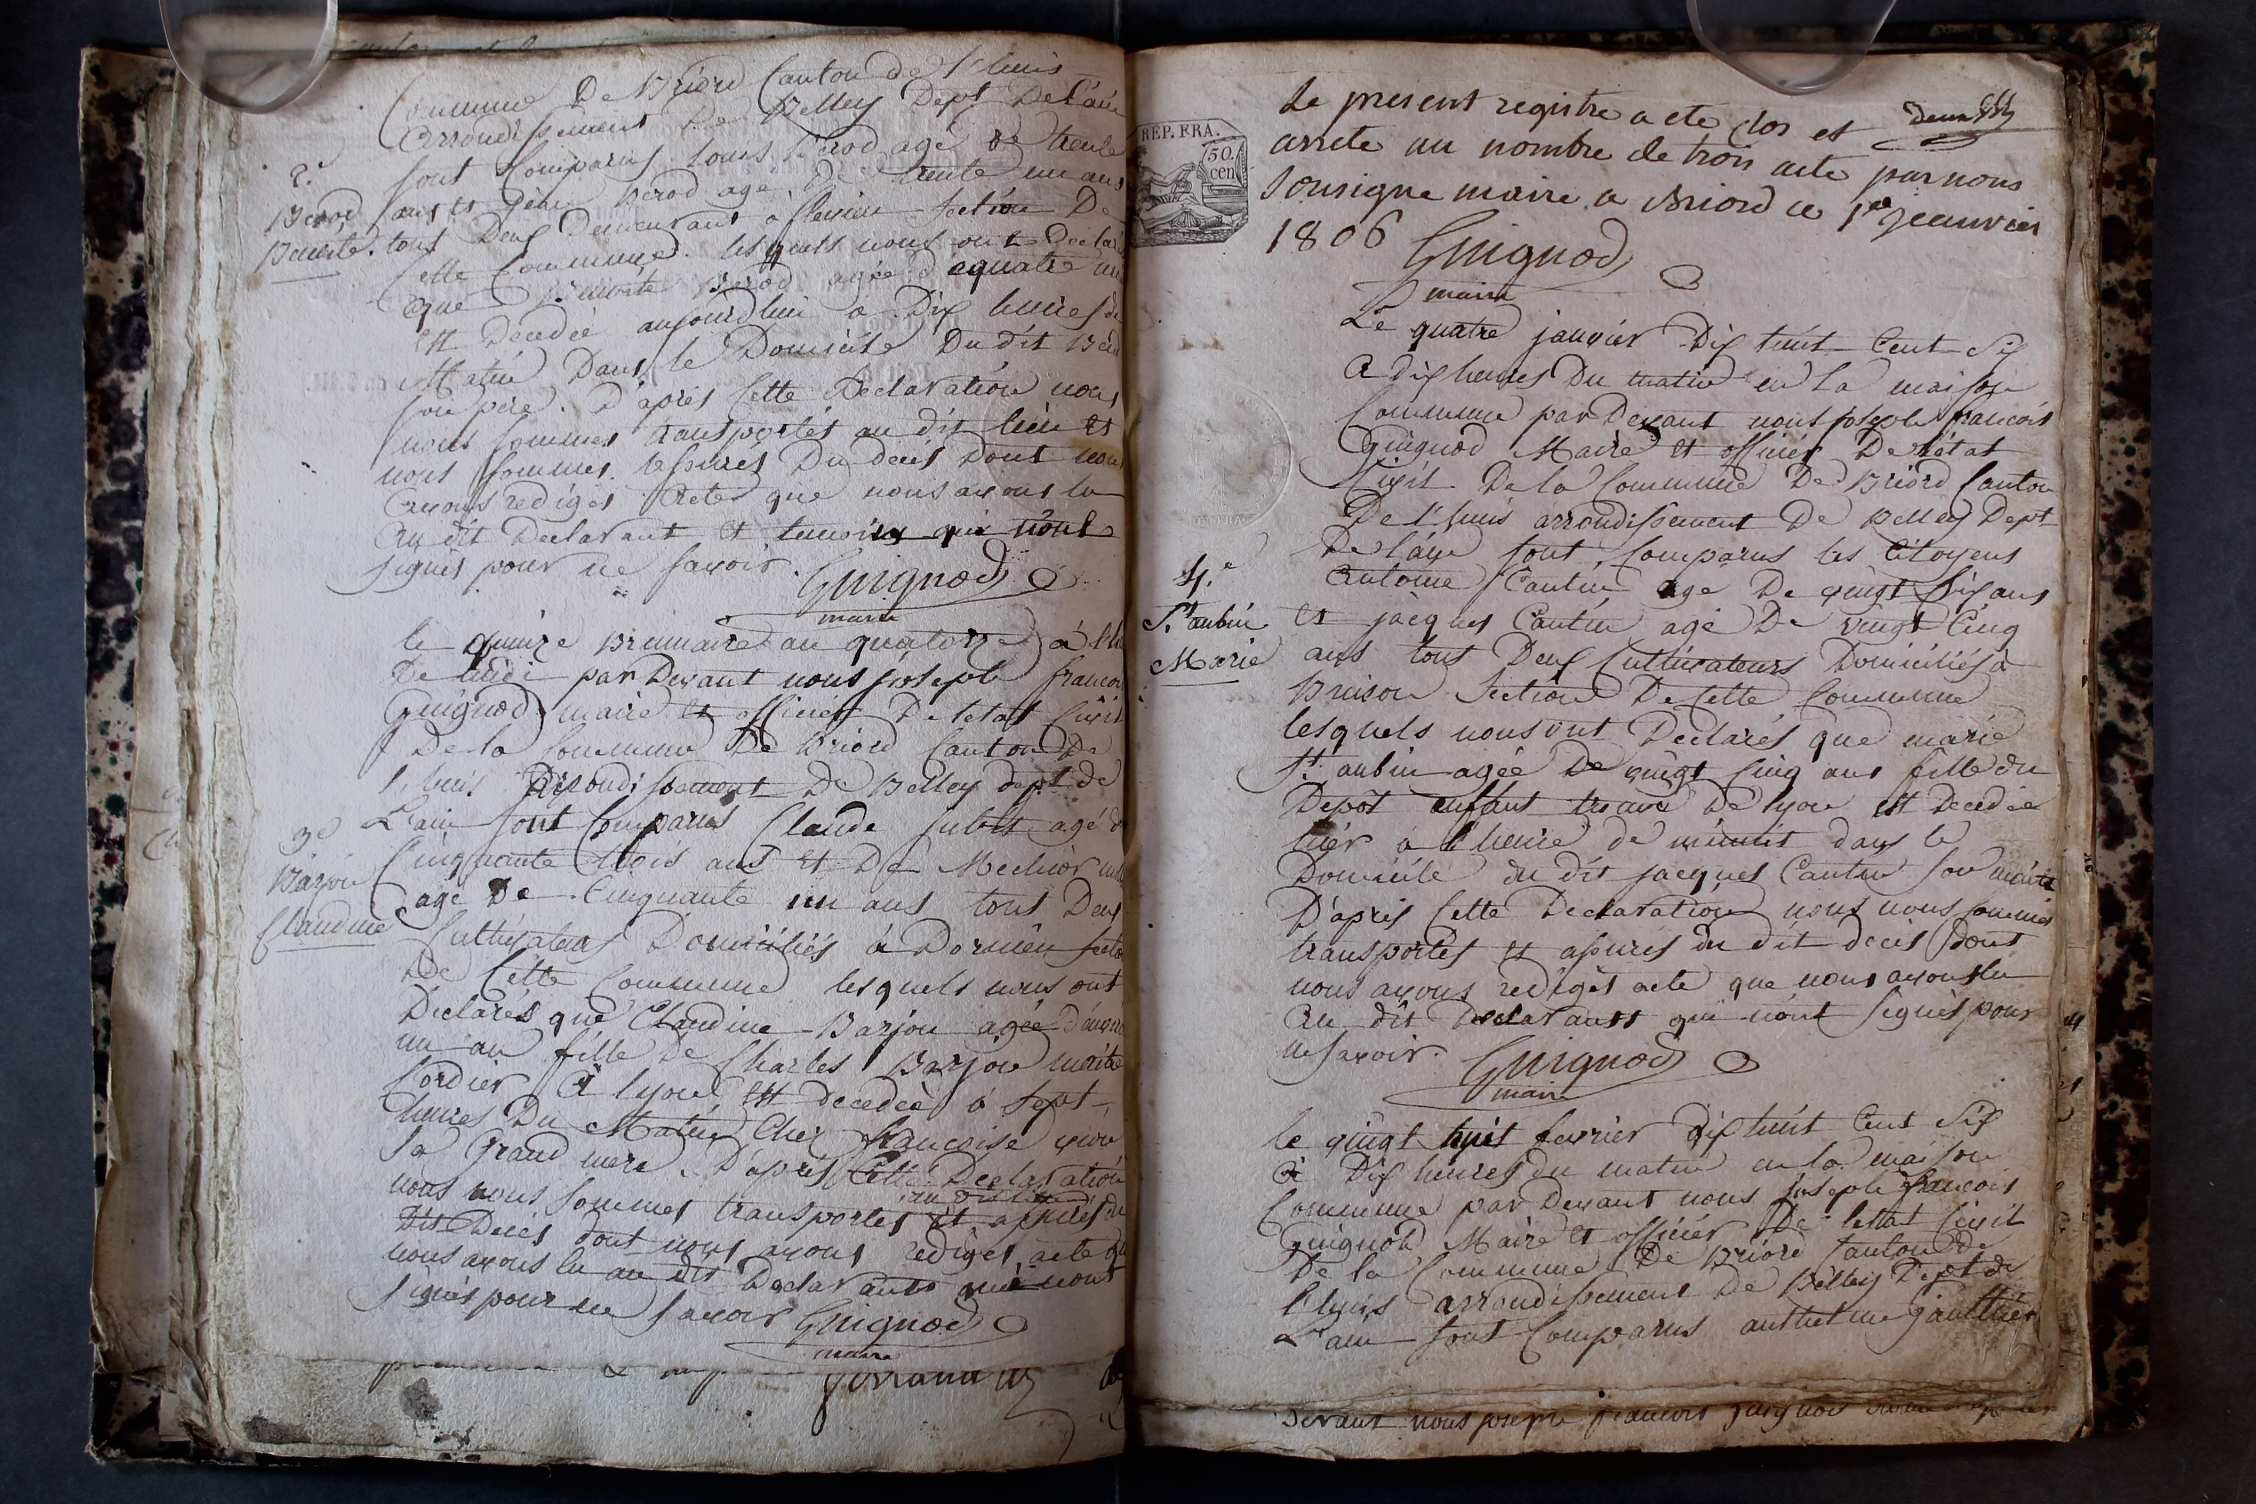 Commune De Briord Canton de l'huis
arrondissement De Belley Dept De l'ain
sont Comparus Louis Berod agé de trente
ans et Berod agé De trente un ans
tout Deux Demeurant à flevieu Section De
cette Commune. lesquels nous ont Declaré
que Benoite Berod agée de quatre
est Decedée aujourdhui a Dix heures du
Matin Dans le Domicile Du dit Berod
son pere. D'après Cette Declaration nous
nous sommes transportés au dit lieu et
nous sommes assurés Du decés Dont nous
avons rediges Acte que nous avons lu
au dit Declarant et temoins qui n'ont
signés pour ne savoir. Guignod
maire
2.e
Berod
Benoite.
le quinze Brumaire an quatorze à l'heure
De midi par Devant nous joseph francois
Guignod maire et officier De letat Civil
De la Commune De Briord Canton De
l'huis arrondissement De Belley dept de
L'ain sont Comparus Claude Jubet agé de
Cinquante trois ans et De Mechior
agé De Cinquante un ans tous Deux
Cultivateurs Domiciliés à Dornieu section
De Cette Commune lesquels nous ont
Declarés que Claudine Barjou agée d'environ
un an fille De Charles Barjou maitre
Cordier à lyon est decedée à sept
heures Du Matin Chez francoise
Sa Grand mere. D'après Cette Declaration
nous nous sommes transportés au dit lieu et assurés du
dit Decés dont nous avons rediges acte que
nous avons lu au dit Declarants qui n'ont
signés pour ne savoir Guignod
maire
3e
Barjou
Claudine
REP. FRA.
50.
cen
Le present registre a ete clos et
arrete au nombre de trois acte par nous
sousigne maire a Briord ce 1er jeanvier
1806 Guignod
maire
Le quatre janvier Dix huit Cent Six
A dix heures Du matin en la maison
Commune par Devant nous joseph francois
Guignod Maire et officier De l'état
Civil De la Commune De Briord Canton
De l'huis arrondissement De Belley Dept
De l'ain sont Comparus les Citoyens
antoine Cantin agé De vingt six ans
et jacques Cantin agé De vingt Cinq
ans tous Deux Cultivateurs Domiciliés à
Buison Section De Cette Commune
lesquels nous ont Declarés que marie
St. aubin agée De vingt Cinq ans fille du
Depôt enfant trouvé De lyon est Decedée
hier à l'heure de minuit dans le
Domicile du dit jacques Cantin son mari
D'après Cette Declaration nous nous sommes
transportés et assurés du dit decés dont
nous avons rédigés acte que nous avons lu
au dit Declarants qui n'ont signés pour
ne savoir. Guignod
maire
4.e
St. aubin
Marie
le vingt huit fevrier dix huit Cent Six
à Dix heures du matin en la maison
Commune par Devant nous joseph francois
Guignod Maire et officier De letat Civil
De la Commune De Briord Canton de
l'huis arrondissement De Belley Dept de
L'ain sont Comparus anthelme Gauthier
devant nous joseph francois guignod